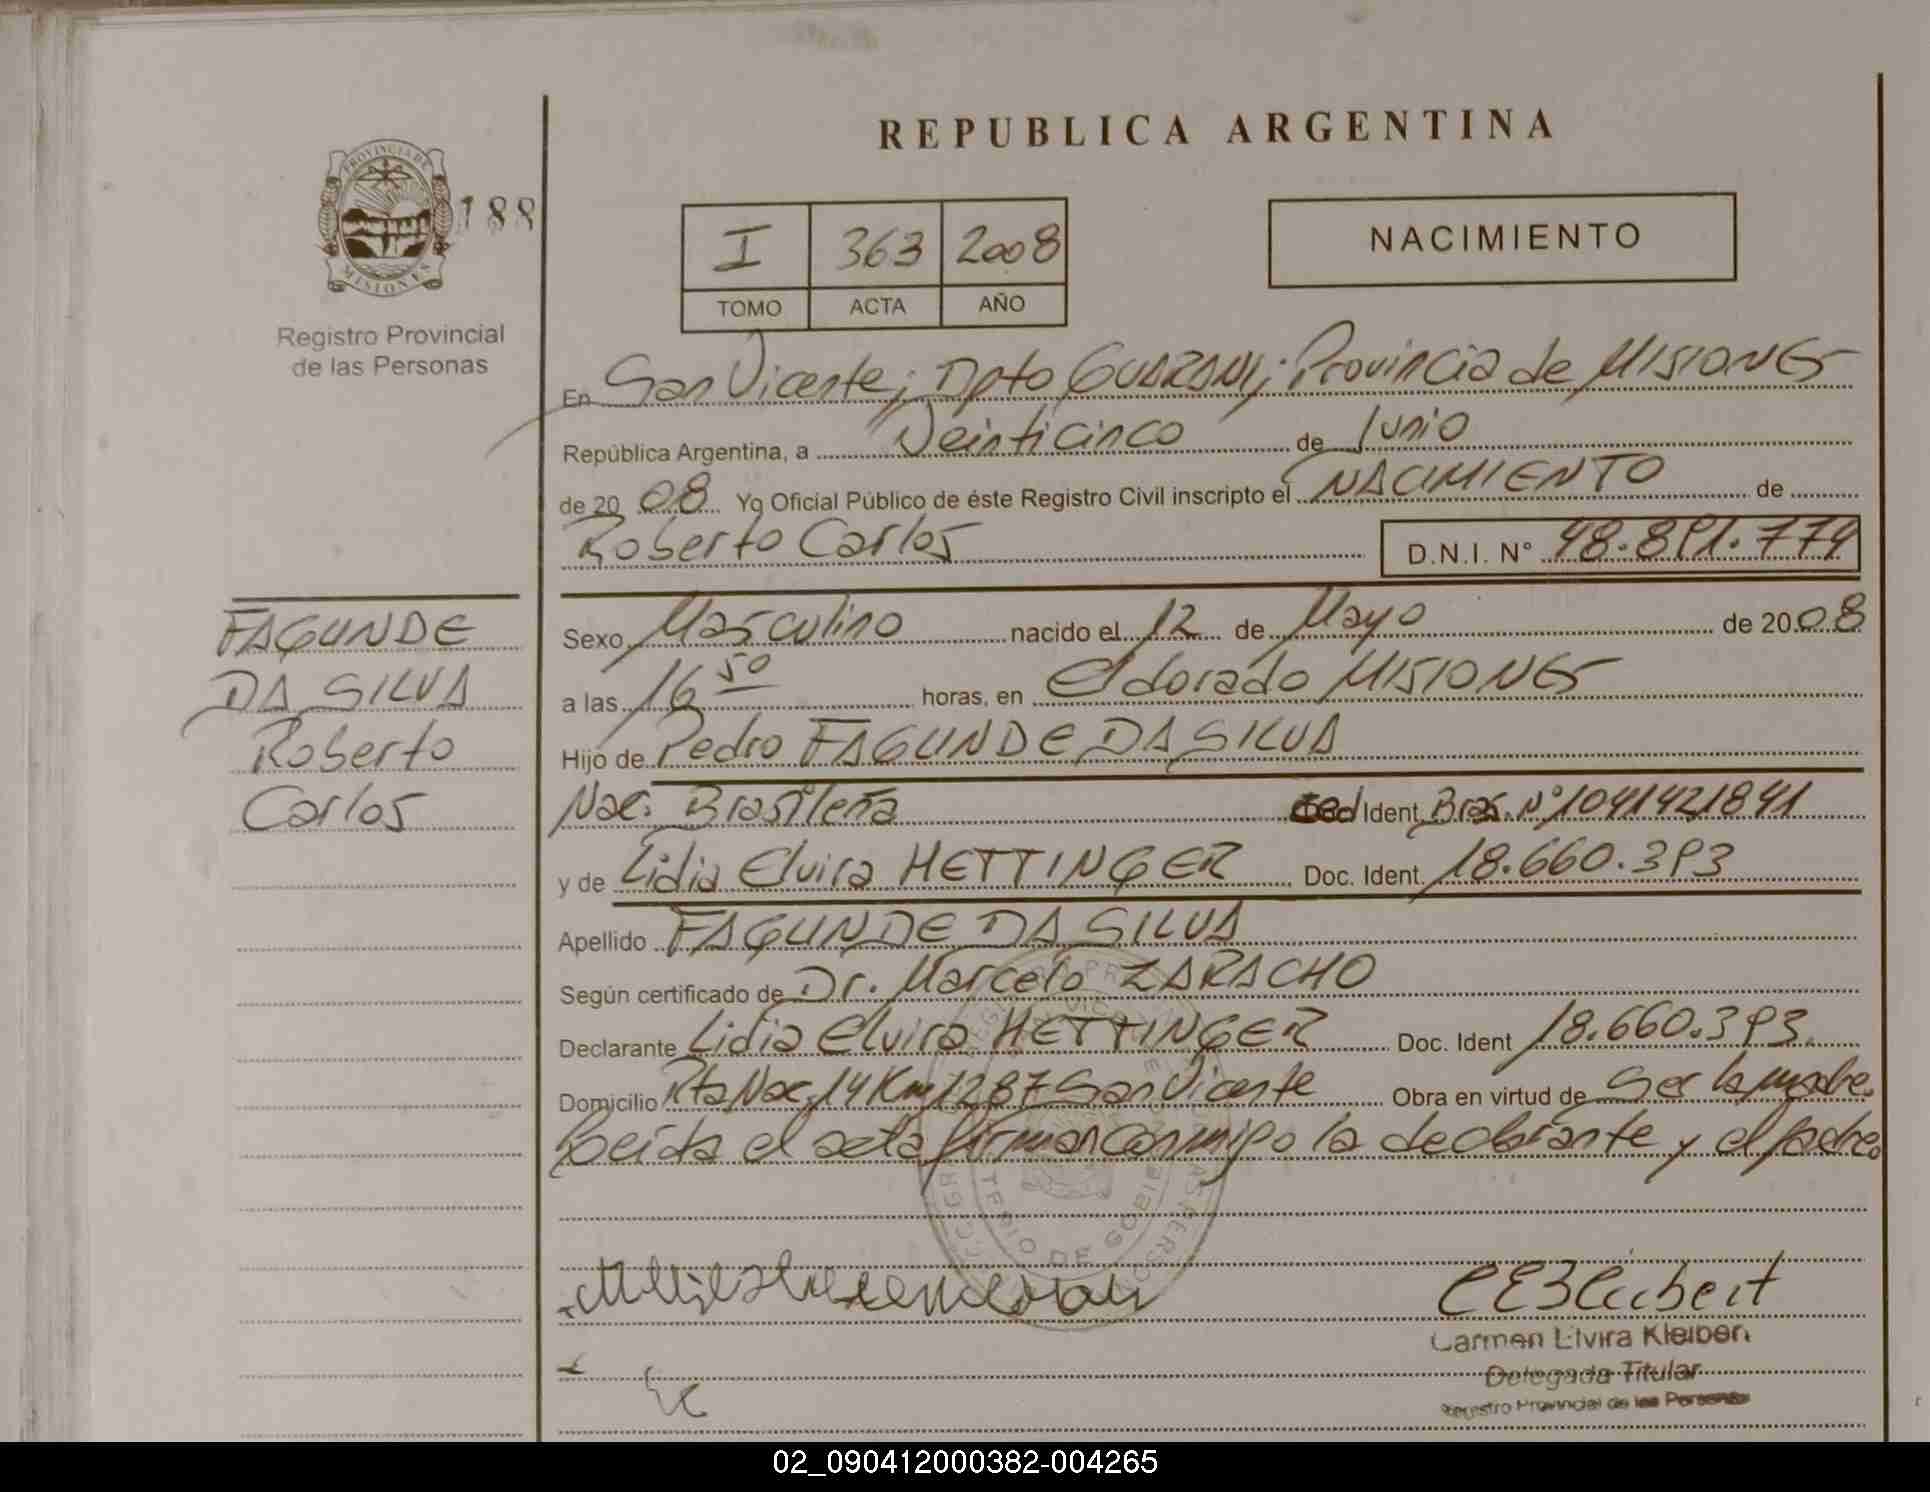 REPUBLICA ARGENTINA
PROVINCIA DE
MISIONES
188
Registro Provincial
de las Personas
I 363 2008
TOMO ACTA AÑO
NACIMIENTO
En San Vicente; Dpto GUARANI; Provincia de MISIONES
República Argentina, a Veinticinco de Junio
de 20 08 Yo Oficial Público de éste Registro Civil inscripto el NACIMIENTO de
Roberto Carlos D.N.I. N° 48.891.774
FAGUNDE
DA SILVA
Roberto
Carlos
Sexo Masculino nacido el 12 de Mayo de 2008
a las 16 50 horas, en Eldorado MISIONES
Hijo de Pedro FAGUNDE DA SILVA
Nac. Brasileña Ced Ident. Bras. N° 1041421841
y de Lidia Elvira HETTINGER Doc. Ident. 18.660.393
Apellido FAGUNDE DA SILVA
Según certificado de Dr. Marcelo ZARACHO
Declarante Lidia Elvira HETTINGER Doc. Ident 18.660.393.
Domicilio Rta Nac. 14 Km 1287 San Vicente Obra en virtud de Ser la madre.
Leida el acta firman conmigo la declarante y el padre.
Carmen Elvira Kleiben
Delegada Titular
Registro Provincial de las Personas
02_090412000382-004265